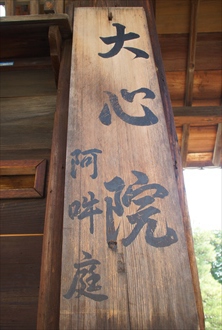 大心院
阿吽庭